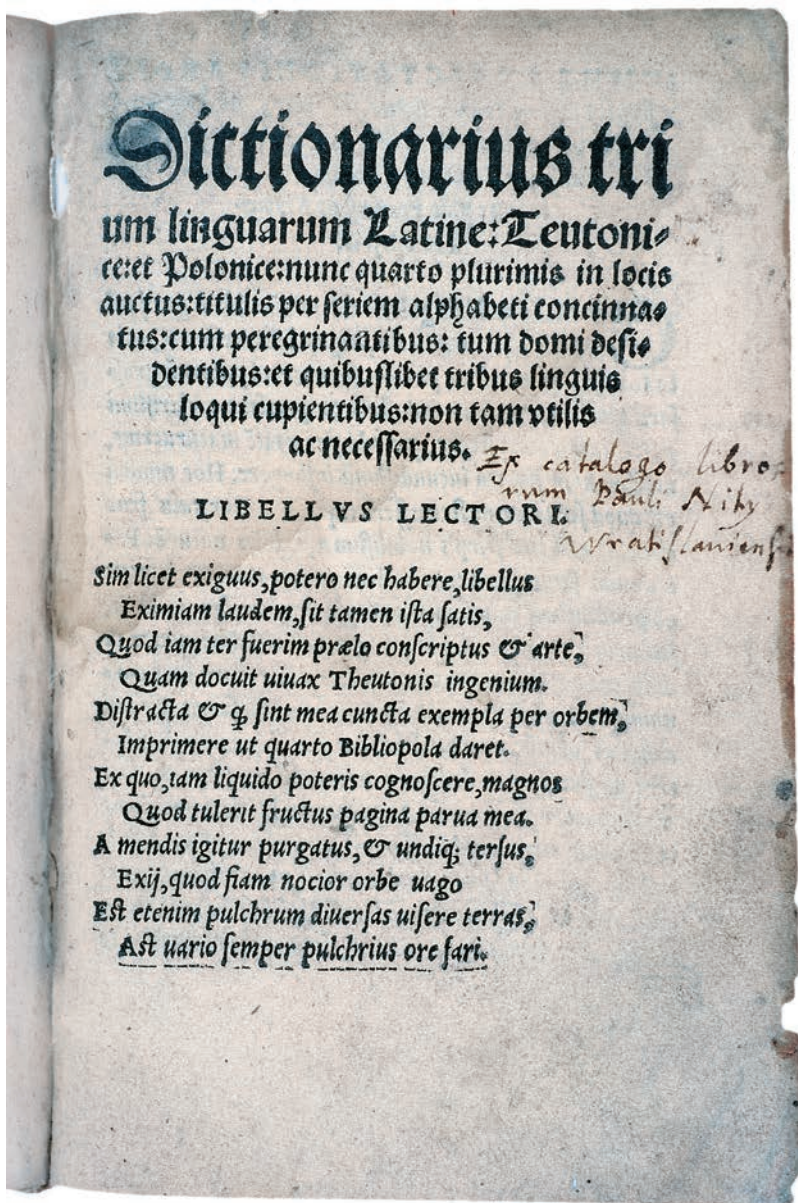 Dictionarius tri
um linguarum Latine:Teutoni⸗
ce:et Polonice:nunc quarto plurimis in locis
auctus:titulis per seriem alphabeti concinna⸗
tus:cum peregrinantibus: tum domi desi⸗
dentibus:et quibuslibet tribus linguis
loqui cupientibus:non tam vtilis
ac necessarius.
Ex catalogo libro⸗
rum Pauli
Wratislauiensis
LIBELLVS LECTORI.
Sim licet exiguus,potero nec habere,libellus
Eximiam laudem,sit tamen ista satis,
Quod iam ter fuerim prælo conscriptus & arte,
Quam docuit uiuax Theutonis ingenium.
Distracta & ꝙ sint mea cuncta exempla per orbem,
Imprimere ut quarto Bibliopola daret.
Ex quo,iam liquido poteris cognoscere,magnos
Quod tulerit fructus pagina parua mea.
A mendis igitur purgatus,& undiq; tersus,
Exij,quod fiam nocior orbe uago
Est etenim pulchrum diuersas uisere terras,
Ast uario semper pulchrius ore fari.